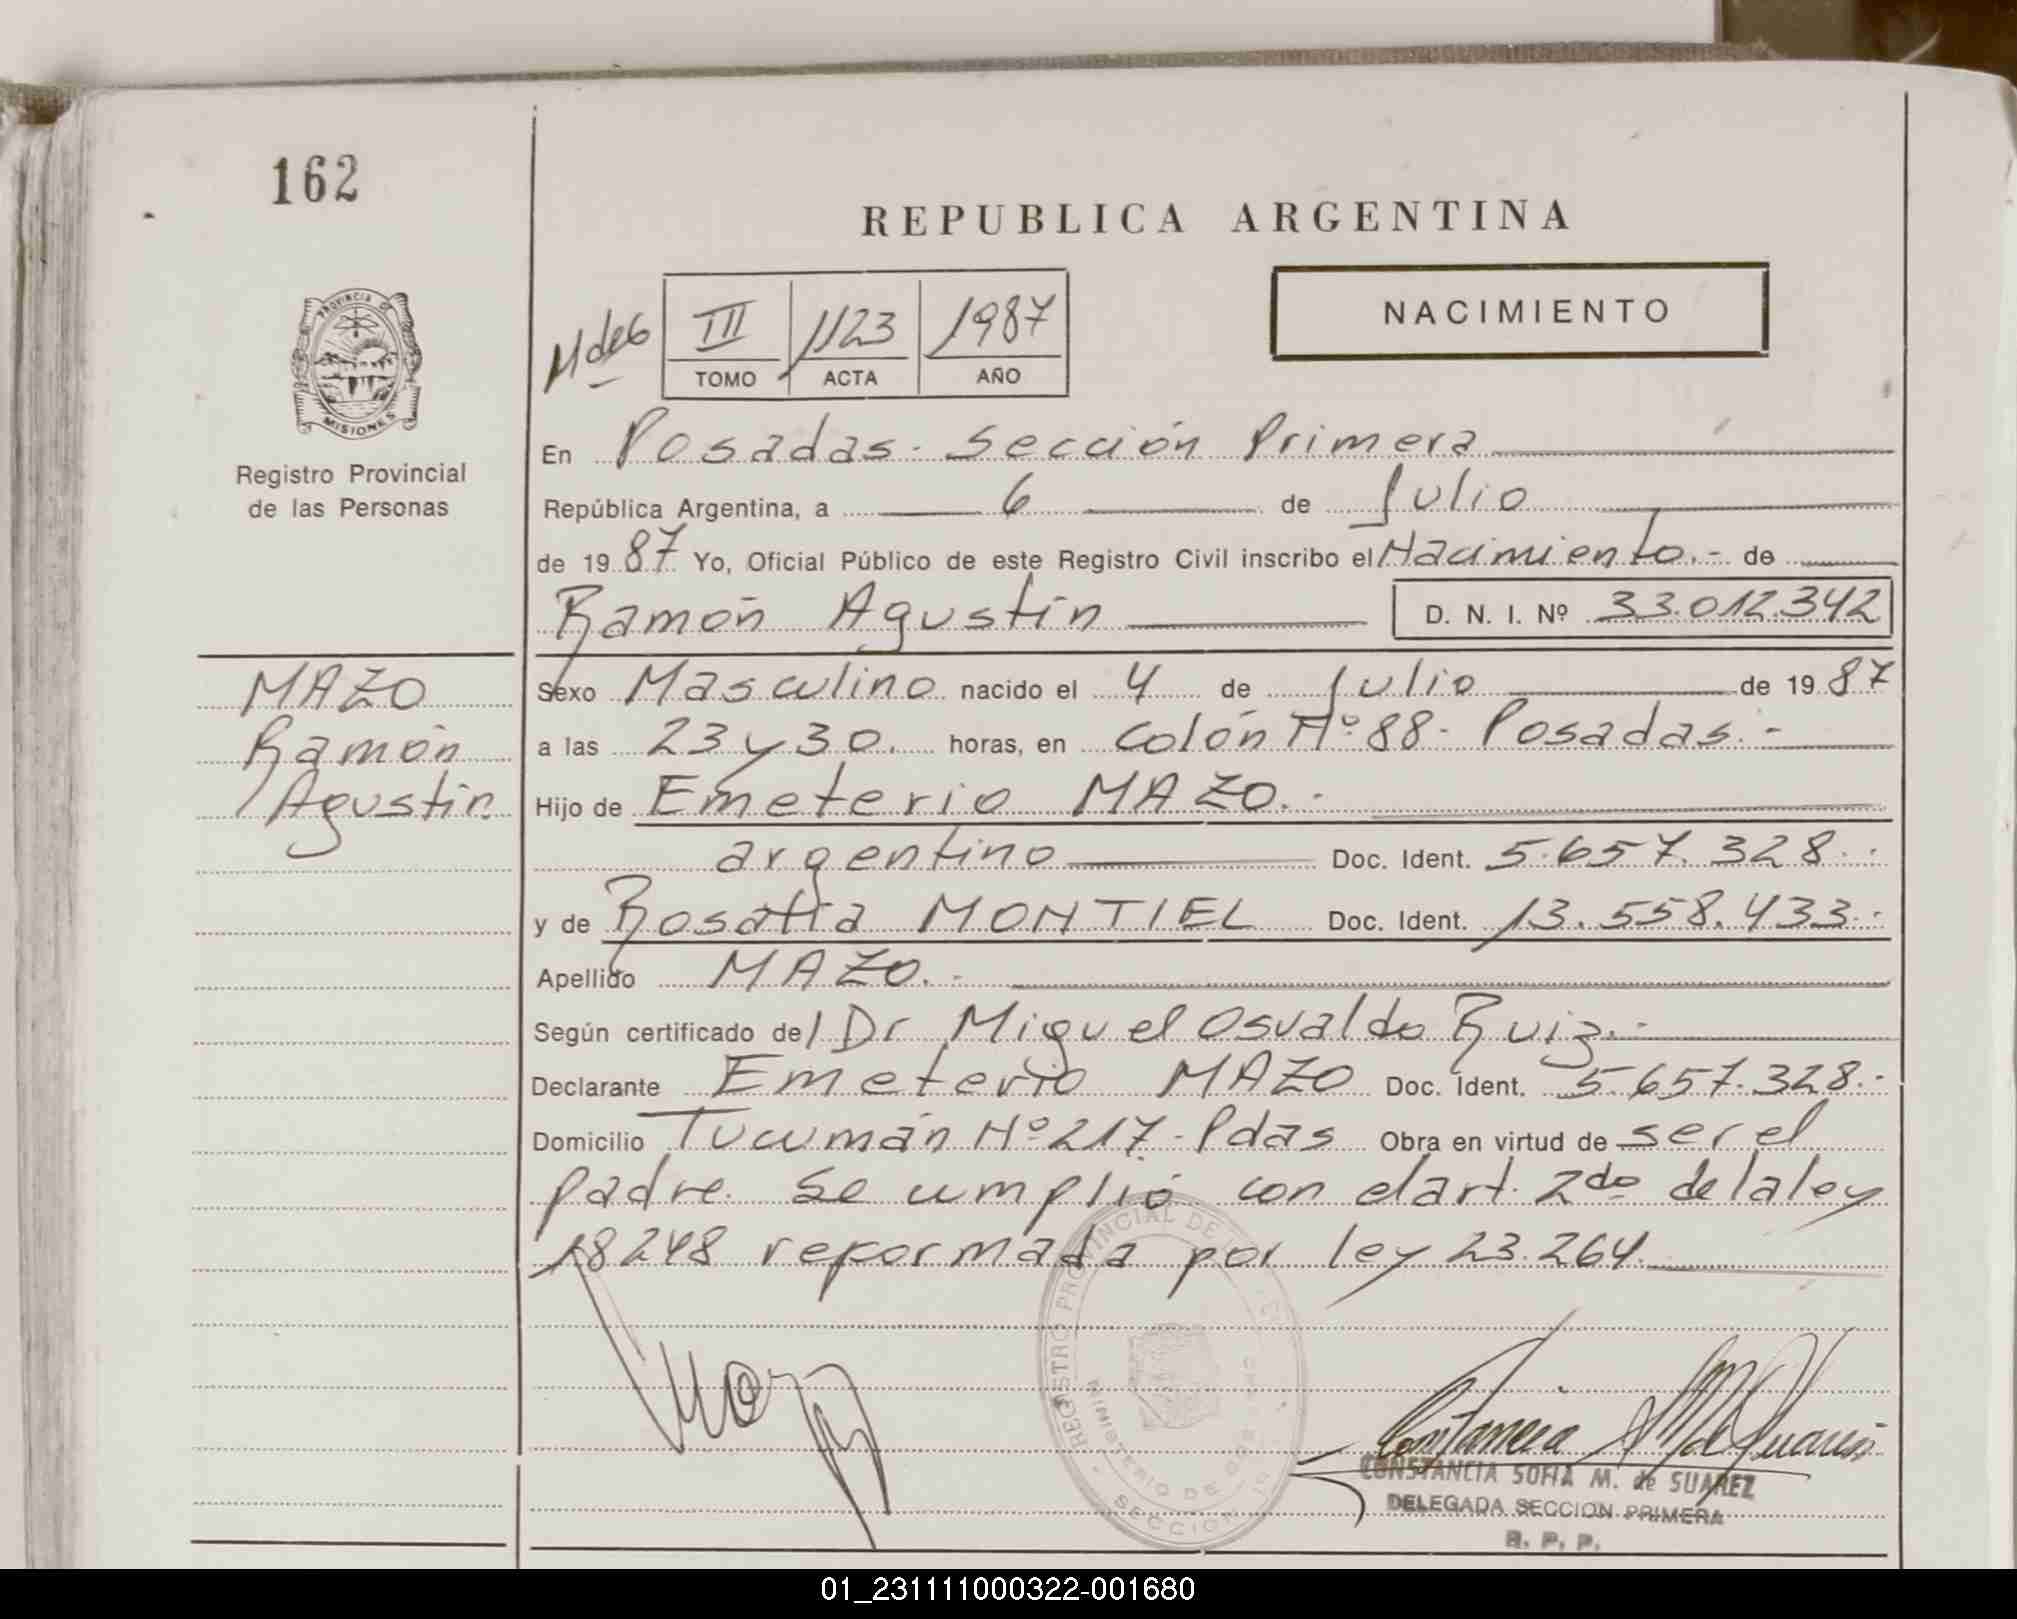 162
REPUBLICA ARGENTINA
NACIMIENTO
III 1123 1987
TOMO ACTA AÑO
PROVINCIA DE
MISIONES
Registro Provincial
de las Personas
En Posadas. Sección Primera
República Argentina, a 6 de Julio
de 1987 Yo, Oficial Público de este Registro Civil inscribo el Nacimiento.- de
Ramón Agustín D. N. I. Nº 33.012.342
MAZO
Ramón
Agustín
Sexo Masculino nacido el 4 de Julio de 1987
a las 23 y 30. horas, en Colón Nº 88- Posadas.-
Hijo de Emeterio MAZO.-
argentino Doc. Ident. 5.657.328.-
y de Rosalía MONTIEL Doc. Ident. 13.558.433.-
Apellido MAZO.-
Según certificado del Dr Miguel Osvaldo Ruiz.-
Declarante Emeterio MAZO Doc. Ident. 5.657.328.-
Domicilio Tucumán Nº 217.- Pdas Obra en virtud de ser el
padre. Se cumplió con el art. 2do de la ley
18248 reformada por ley 23.264.
REGISTRO PROVINCIAL DE
MINISTERIO DE
SECCION
CONSTANCIA SOFIA M. de SUAREZ
DELEGADA SECCION PRIMERA
R. P. P.
01_231111000322-001680